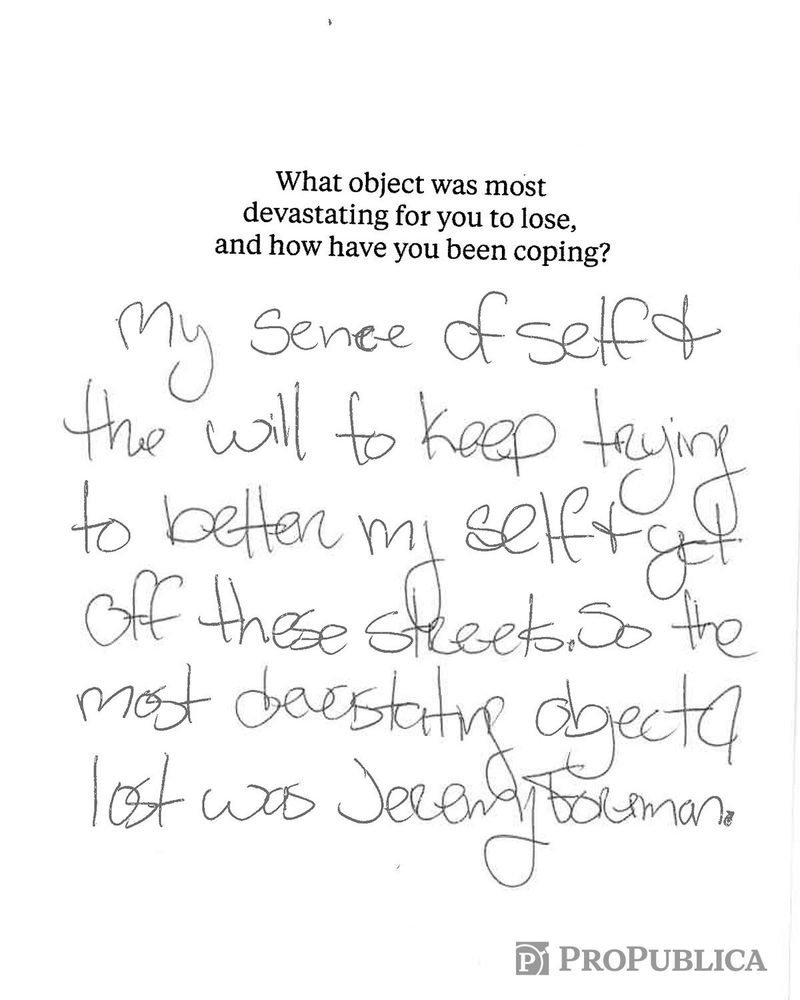 What object was most
devastating for you to lose,
and how have you been coping?
My sence of self &
the will to keep trying
to better my self & get
off these streets. So the
most devastating object I
lost was Jeremy Fourman.
PROPUBLICA